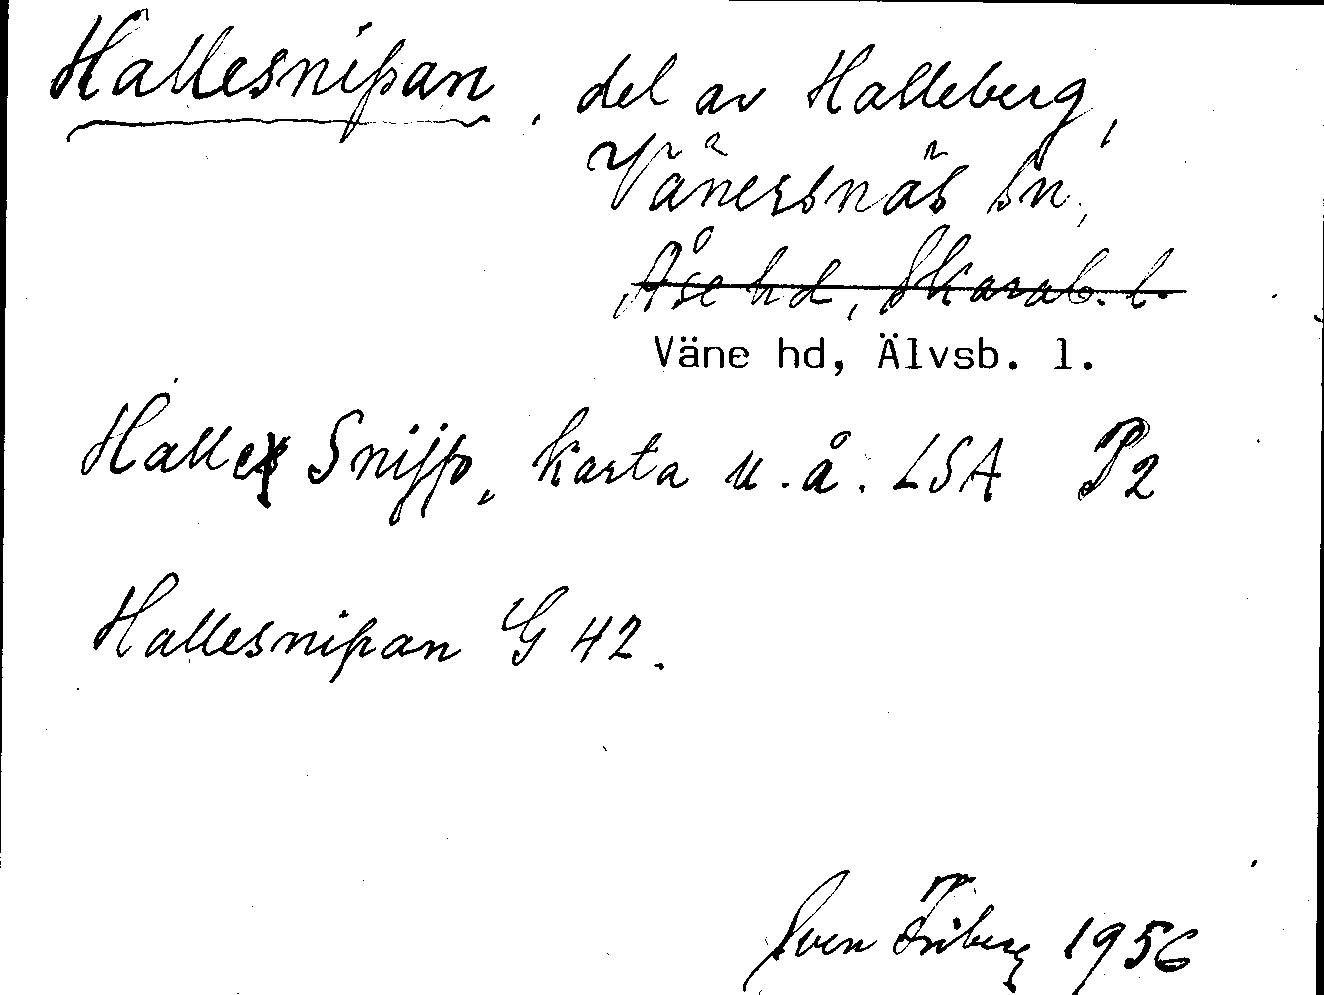 Hallesnipan, del av Halleberg,
Vänersnäs sn,
Åse hd, Skarab. l.
Väne hd, Älvsb. l.
Halles Snipp, karta u. å. LSA P2
Hallesnipan G 42.
Sven Friberg 1956